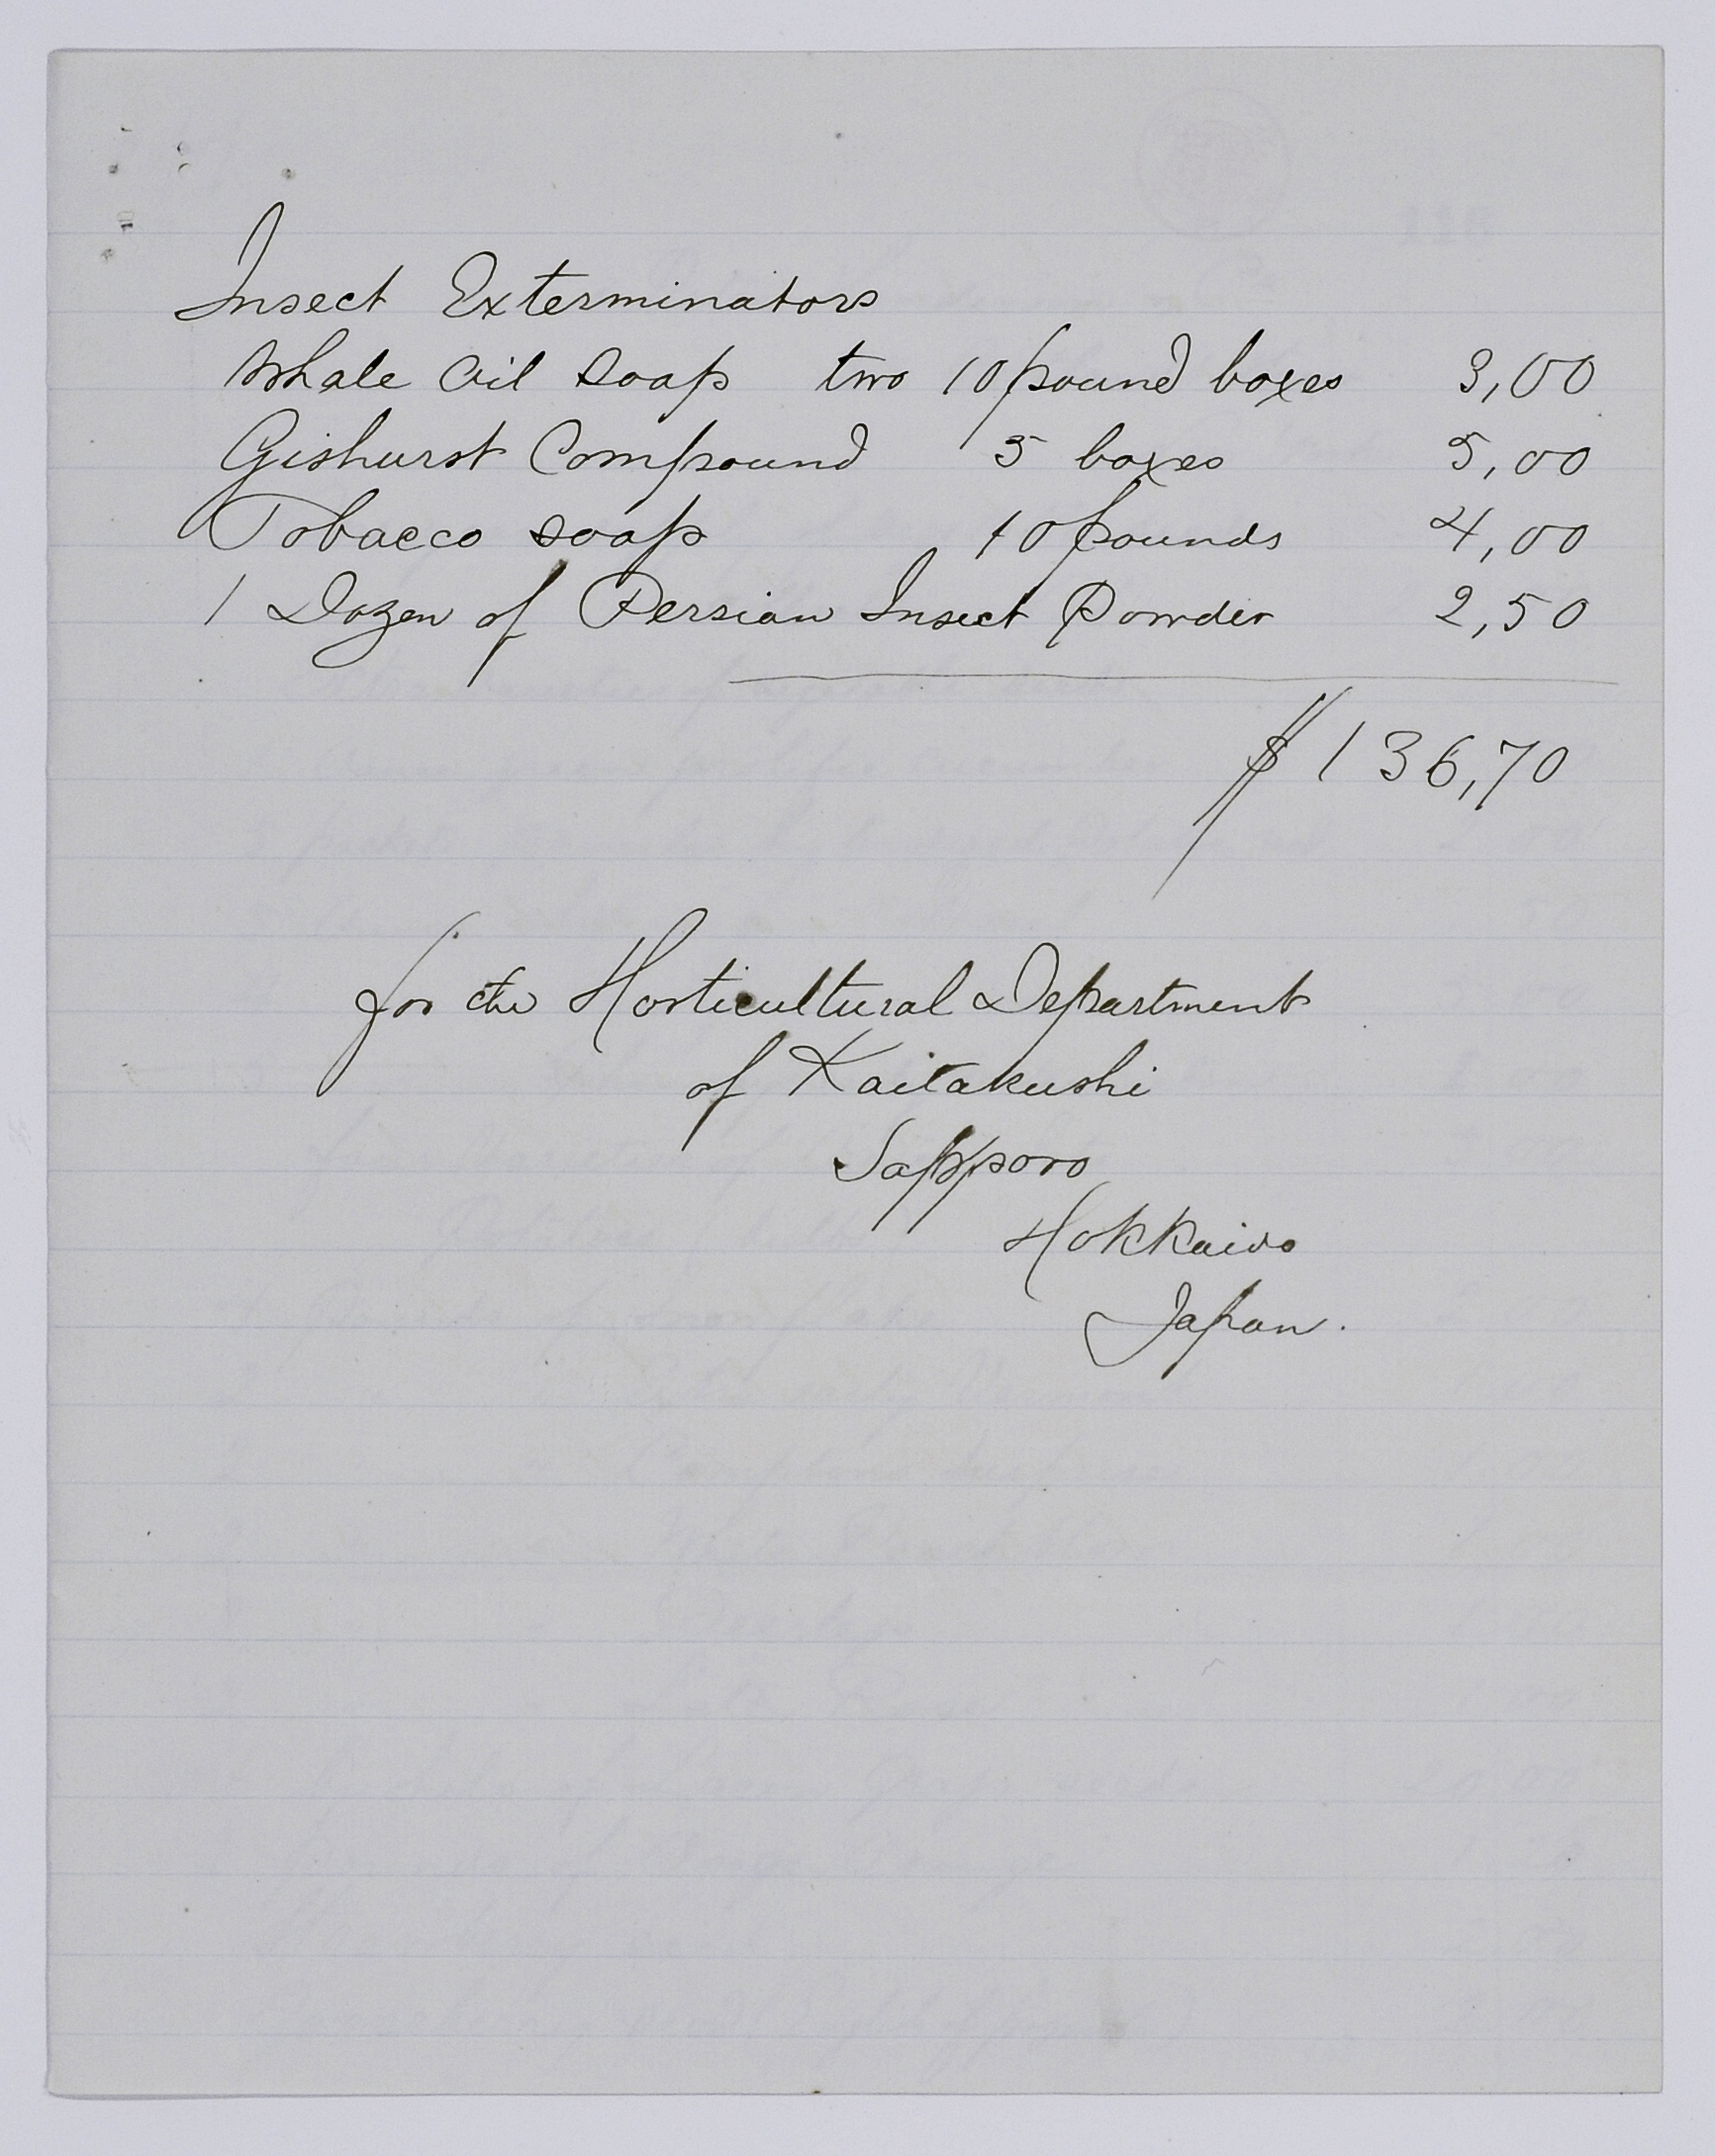 Insect Exterminators
Whale Oil Soap two 10 pound boxes 3,00
Gishurst Compound 5 boxes 5,00
Tobacco soap 10 pounds 4,00
1 Dozen of Persian Insect Powder 2,50
$ 136,70
for the Horticultural Department
of Kaitakushi
Sapporo
Hokkaido
Japan.